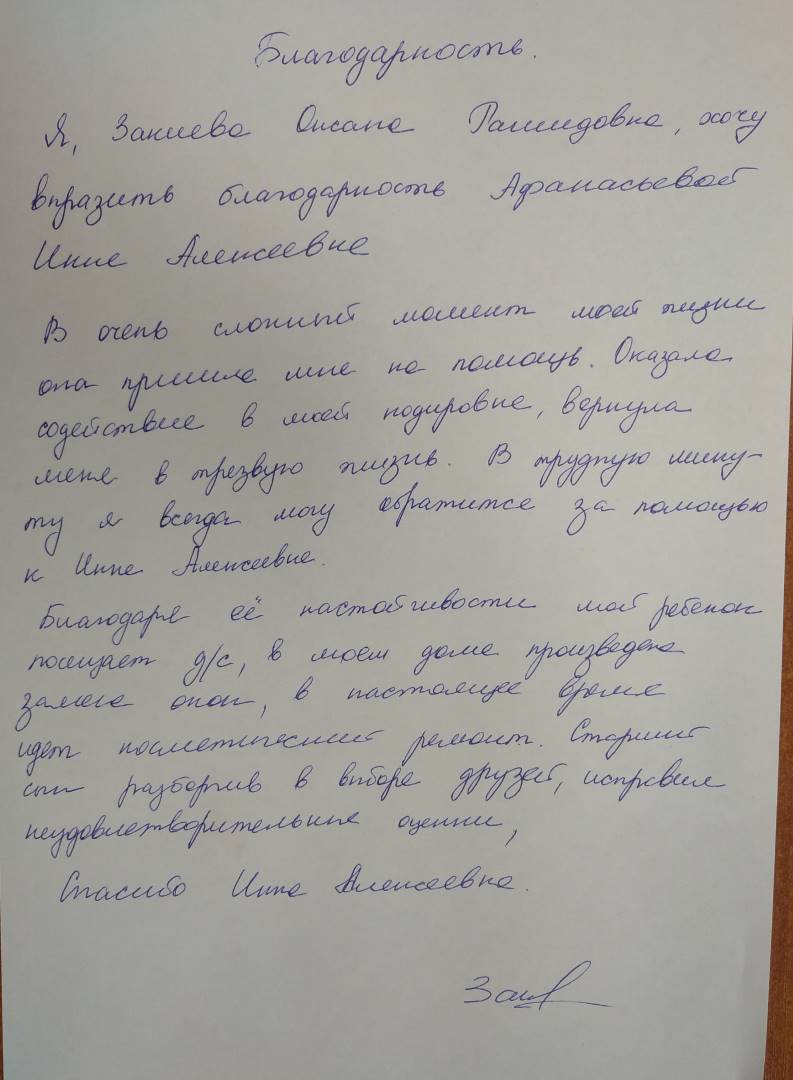 Благодарность.
Я, Закиева Оксана Рашидовна, хочу
выразить благодарность Афанасьевой
Инне Алексеевне
В очень сложный момент моей жизни
она пришла мне на помощь. Оказала
содействие в моей кодировке, вернула
меня в трезвую жизнь. В трудную мину-
ту я всегда могу обратится за помощью
к Инне Алексеевне.
Благодаря её настойчивости мой ребенок
посещает д/с, в моем доме произведена
замена окон, в настоящее время
идет косметический ремонт. Старший
сын разборчив в выборе друзей, исправил
неудовлетворительные оценки,
Спасибо Инна Алексеевна.